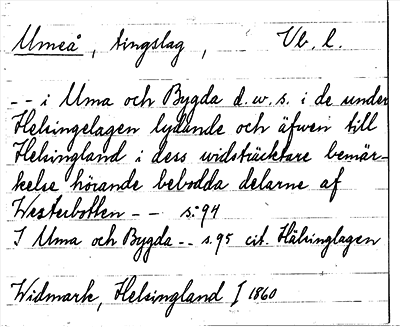 Umeå, tingslag, Vb. l.
-- i Uma och Bygda d.w.s. i de under
Helsingelagen lydande och äfwen till
Helsingland i dess widsträcktare bemär-
kelse hörande bebodda delarne af
Westerbotten -- s. 94
I Uma och Bygda -- s. 95 cit. Hälsinglagen
Widmark, Helsingland I 1860